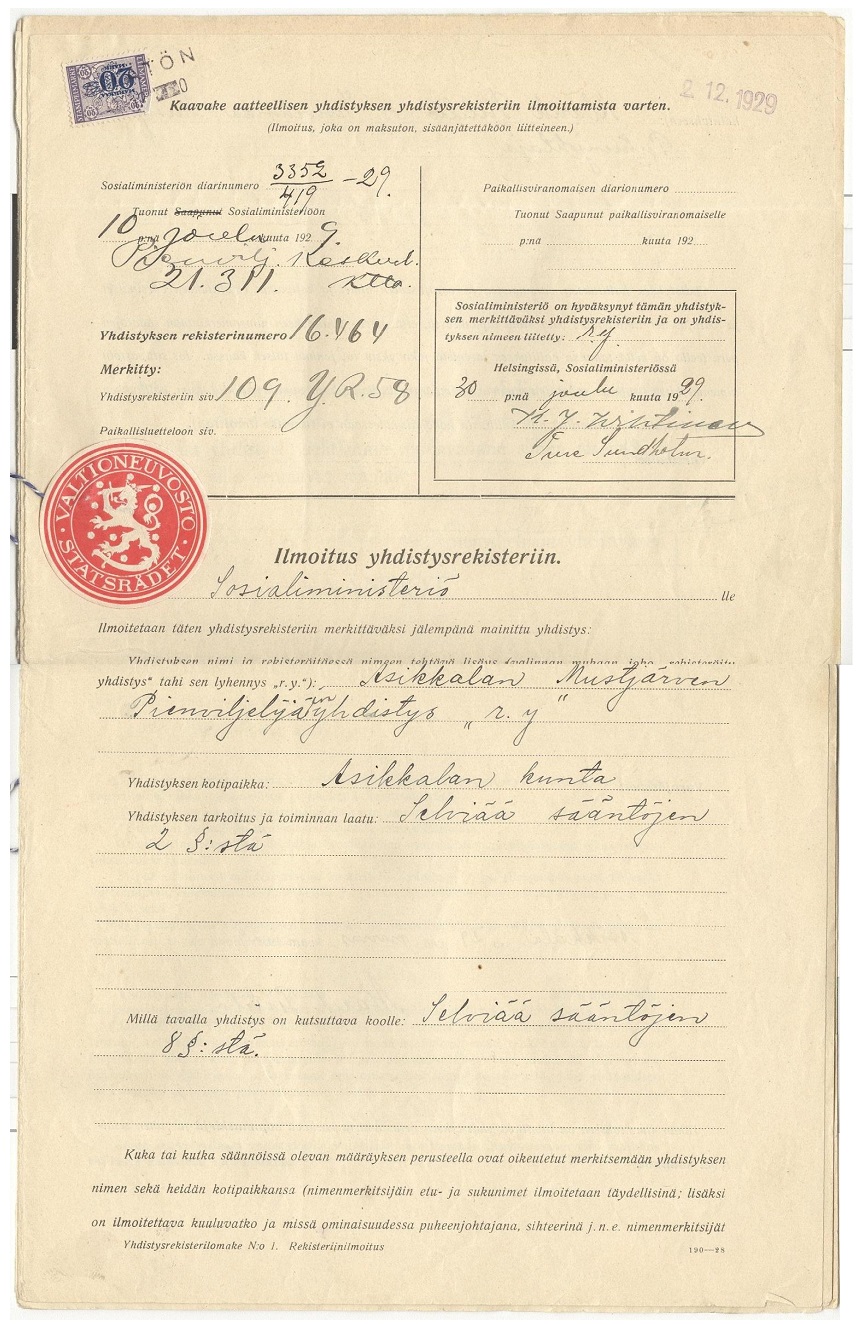 20
TÖN
2.12.1929
Kaavake aatteellisen yhdistyksen yhdistysrekisteriin ilmoittamista varten.
(Ilmoitus, joka on maksuton, sisäänjätettäköön liitteineen.)
Sosialiministeriön diarinumero 3352/419 -29.
Tuonut Saapunut Sosialiministeriöön
10 p:nä joulukuuta 1929.
Pienvilj. Keskusl.
21.311. ktto.
Yhdistyksen rekisterinumero 16.464
Merkitty:
Yhdistysrekisteriin siv. 109. Y.R. 58
Paikallisluetteloon siv.
Paikallisviranomaisen diarionumero
Tuonut Saapunut paikallisviranomaiselle
p:nä kuuta 192
Sosialiministeriö on hyväksynyt tämän yhdistyk-
sen merkittäväksi yhdistysrekisteriin ja on yhdis-
tyksen nimeen liitetty: r.y.
Helsingissä, Sosialiministeriössä
30 p:nä joulu kuuta 1929.
Ture Sundholm.
VALTIONEUVOSTO
STATSRÅDET
Ilmoitus yhdistysrekisteriin.
Sosialiministeriö lle
Ilmoitetaan täten yhdistysrekisteriin merkittäväksi jälempänä mainittu yhdistys:
Yhdistyksen nimi ja rekisteröitäessä nimeen tehtävä lisäys (valinnan mukaan joko „rekisteröity
yhdistys" tahi sen lyhennys „r.y."): Asikkalan Mustjärven
Pienviljelijäin yhdistys „r. y"
Yhdistyksen kotipaikka: Asikkalan kunta
Yhdistyksen tarkoitus ja toiminnan laatu: Selviää sääntöjen
2 §:stä
Millä tavalla yhdistys on kutsuttava koolle: Selviää sääntöjen
8 §:stä.
Kuka tai kutka säännöissä olevan määräyksen perusteella ovat oikeutetut merkitsemään yhdistyksen
nimen sekä heidän kotipaikkansa (nimenmerkitsijäin etu- ja sukunimet ilmoitetaan täydellisinä; lisäksi
on ilmoitettava kuuluvatko ja missä ominaisuudessa puheenjohtajana, sihteerinä j.n.e. nimenmerkitsijät
Yhdistysrekisterilomake N:o 1. Rekisteriinilmoitus
190—28